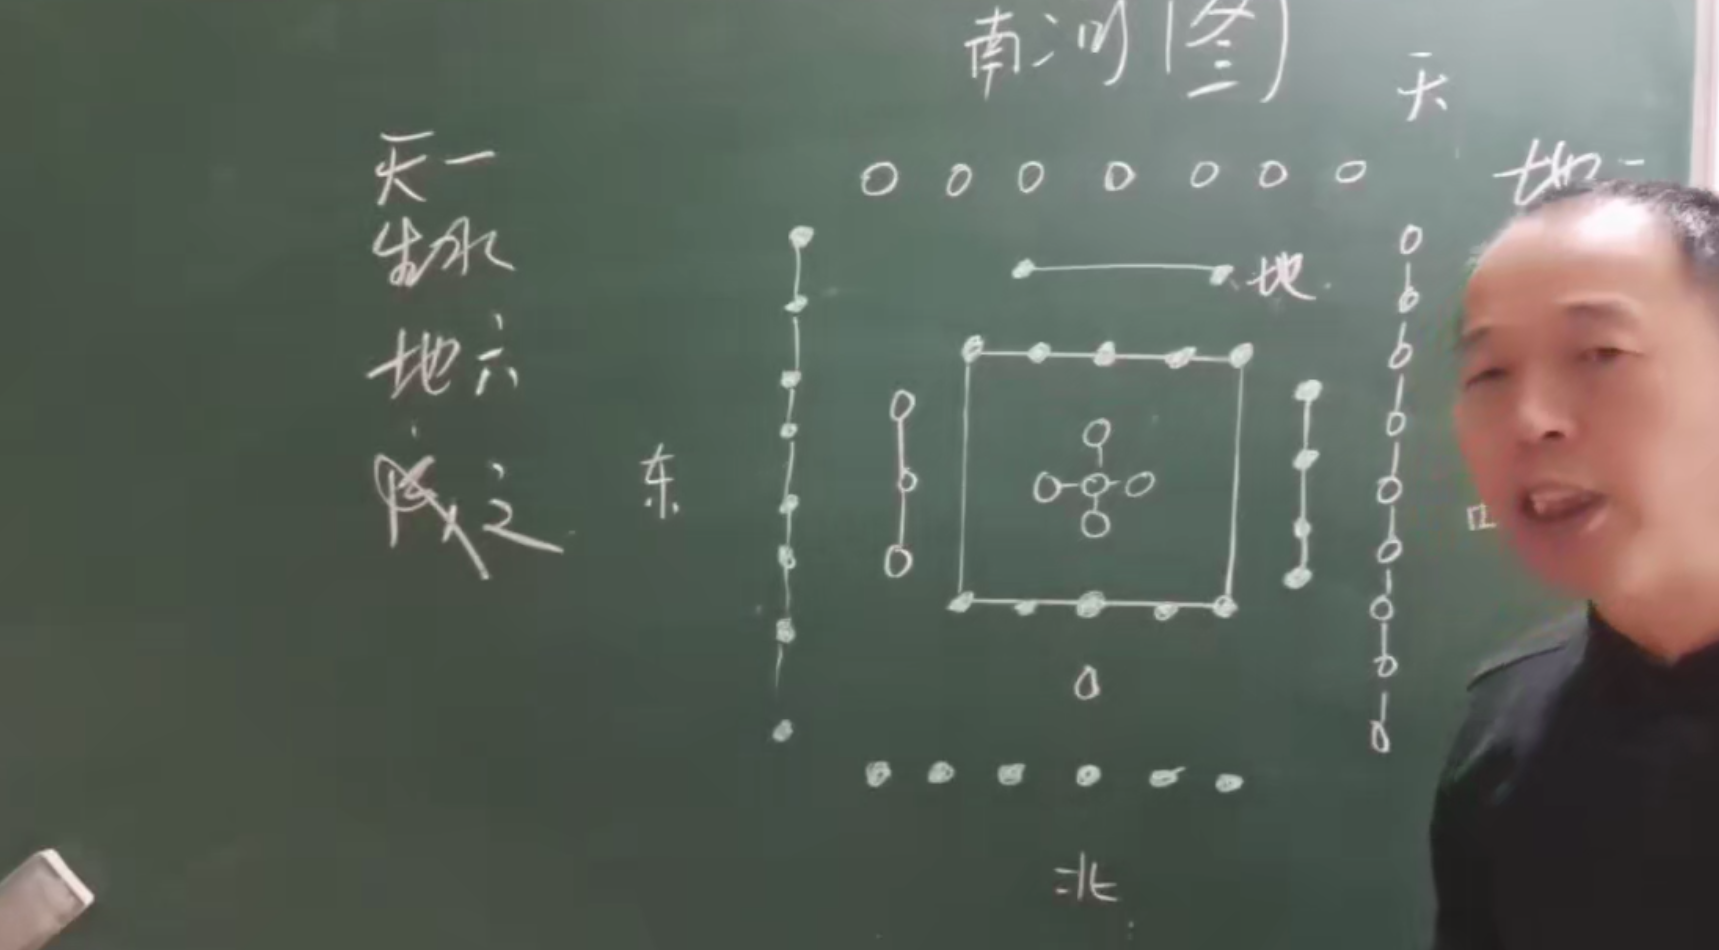 南河图
天
天一
地二
生水
地
地六
成之
东
北